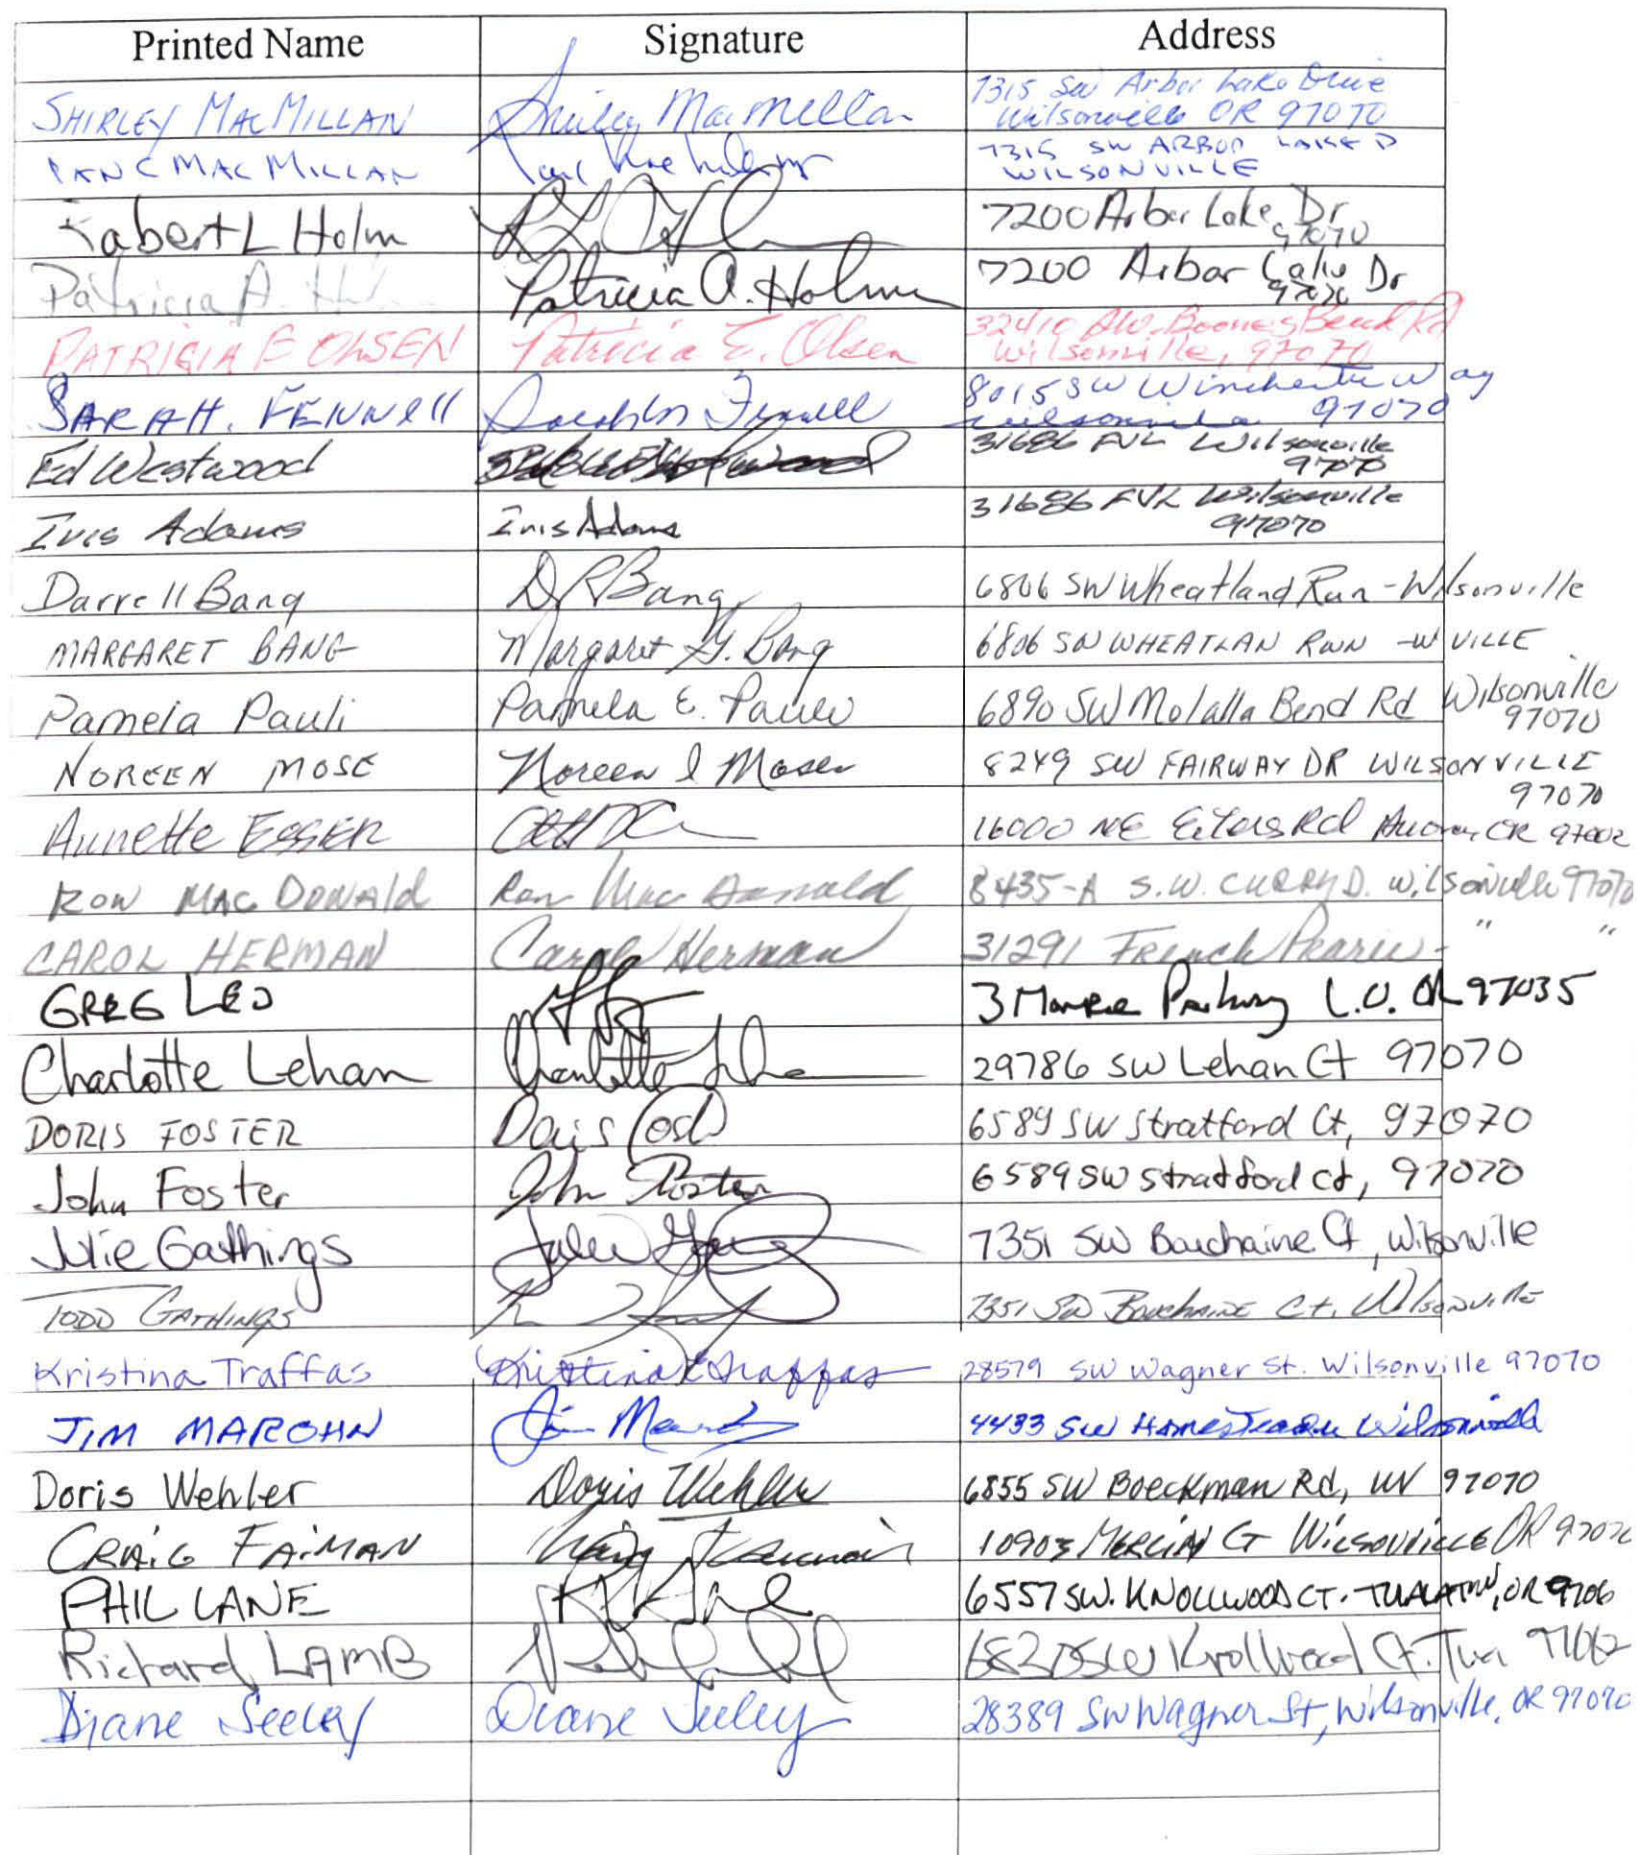 Printed Name Signature Address
SHIRLEY MACMILLAN Shirley MacMillan 7315 SW Arbor Lake Drive
Wilsonville OR 97070
IAN C MAC MILLAN 7315 SW ARBOR LAKE D
WILSONVILLE
Robert L Holm 7200 Arbor Lake Dr
97070
Patricia A. Patricia A. Holm 7200 Arbor Lake Dr
97070
PATRICIA E OLSEN Patricia E. Olsen 32410 SW. Boones Bend Rd
Wilsonville, 97070
SARAH. FENNEll Fennell 8015 SW Winchester Way
Wilsonville 97070
Ed Westwood 31686 FVL Wilsonville
97070
Iris Adams Iris Adams 31686 FVL Wilsonville
97070
Darrell Bang D R Bang 6806 SW Wheatland Run - Wilsonville
MARGARET BANG Margaret G. Bang 6806 SW WHEATLAN RUN - W VILLE
Pamela Pauli Pamela E. Pauli 6890 SW Molalla Bend Rd Wilsonville
97070
NOREEN MOSE Noreen I Moser 8249 SW FAIRWAY DR WILSONVILLE
97070
Annette ESSER 16000 NE Eilers Rd Aurora, OR 97002
RON MAC DONAld Ron Mac Donald 8435-A S.W. CURRY D. Wilsonville 97070
CAROL HERMAN Carol Herman 31291 French Prarie - " "
GREG LEO 3 Monroe Parkway L.O. OR 97035
Charlotte Lehan Charlotte Lehan 29786 SW Lehan Ct 97070
DORIS FOSTER 6589 SW Stratford Ct, 97070
John Foster John Foster 6589 SW Stratford Ct, 97070
Julie Gathings Julie 7351 SW Bouchaine Ct, Wilsonville
TODD GATHINGS 7351 SW Bouchaine Ct. Wilsonville
Kristina Traffas Kristina Traffas 28579 SW Wagner St. Wilsonville 97070
JIM MAROHN Jim 4433 SW Homesteader Wilsonville
Doris Wehler Doris Wehler 6855 SW Boeckman Rd, WV 97070
CRAIG FAIMAN Craig 10903 MERLIN CT WILSONVILLE OR 97070
PHIL LANE 6557 SW. KNOLLWOOD CT. TUALATIN, OR 9706
Richard LAMB SW Knollwood Ct. Tua 97062
Diane Seeley Diane Seeley 28389 SW Wagner St, Wilsonville, OR 97070